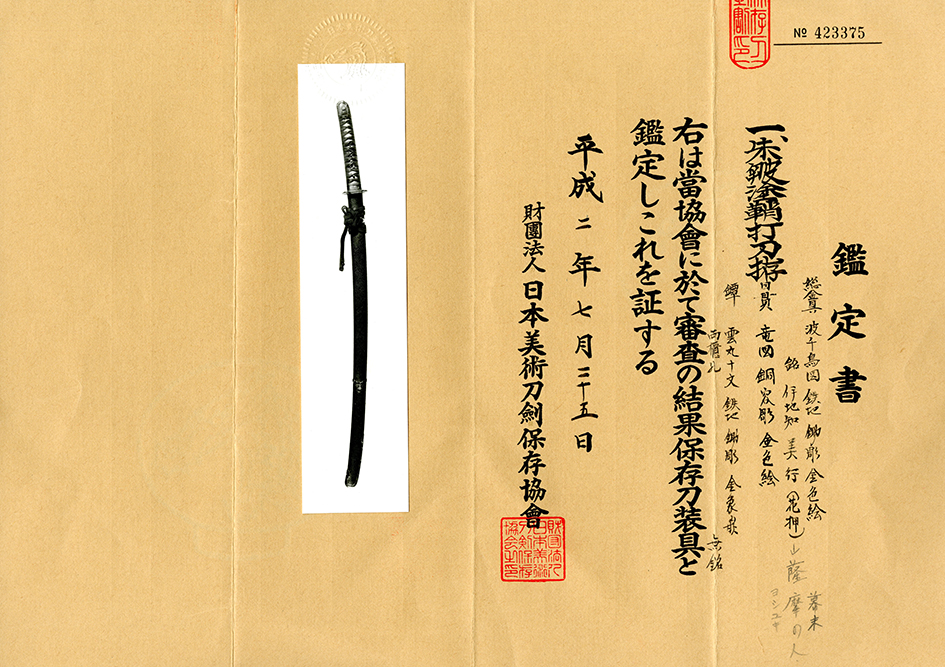 № 423375
鑑定書
一、朱皺塗鞘打刀拵
総金具 波千鳥図 鉄地 鋤彫 金色絵
銘 伊地知 美行(花押)
薩摩の人
幕末
ヨシユキ
目貫 竜図 銅容彫 金色絵
鐔 雲九十文 鉄地 鋤彫 金象嵌 無銘
右は當協會に於て審査の結果保存刀装具と
鑑定しこれを証する
平成二年七月二十五日
財團法人日本美術刀劍保存協會